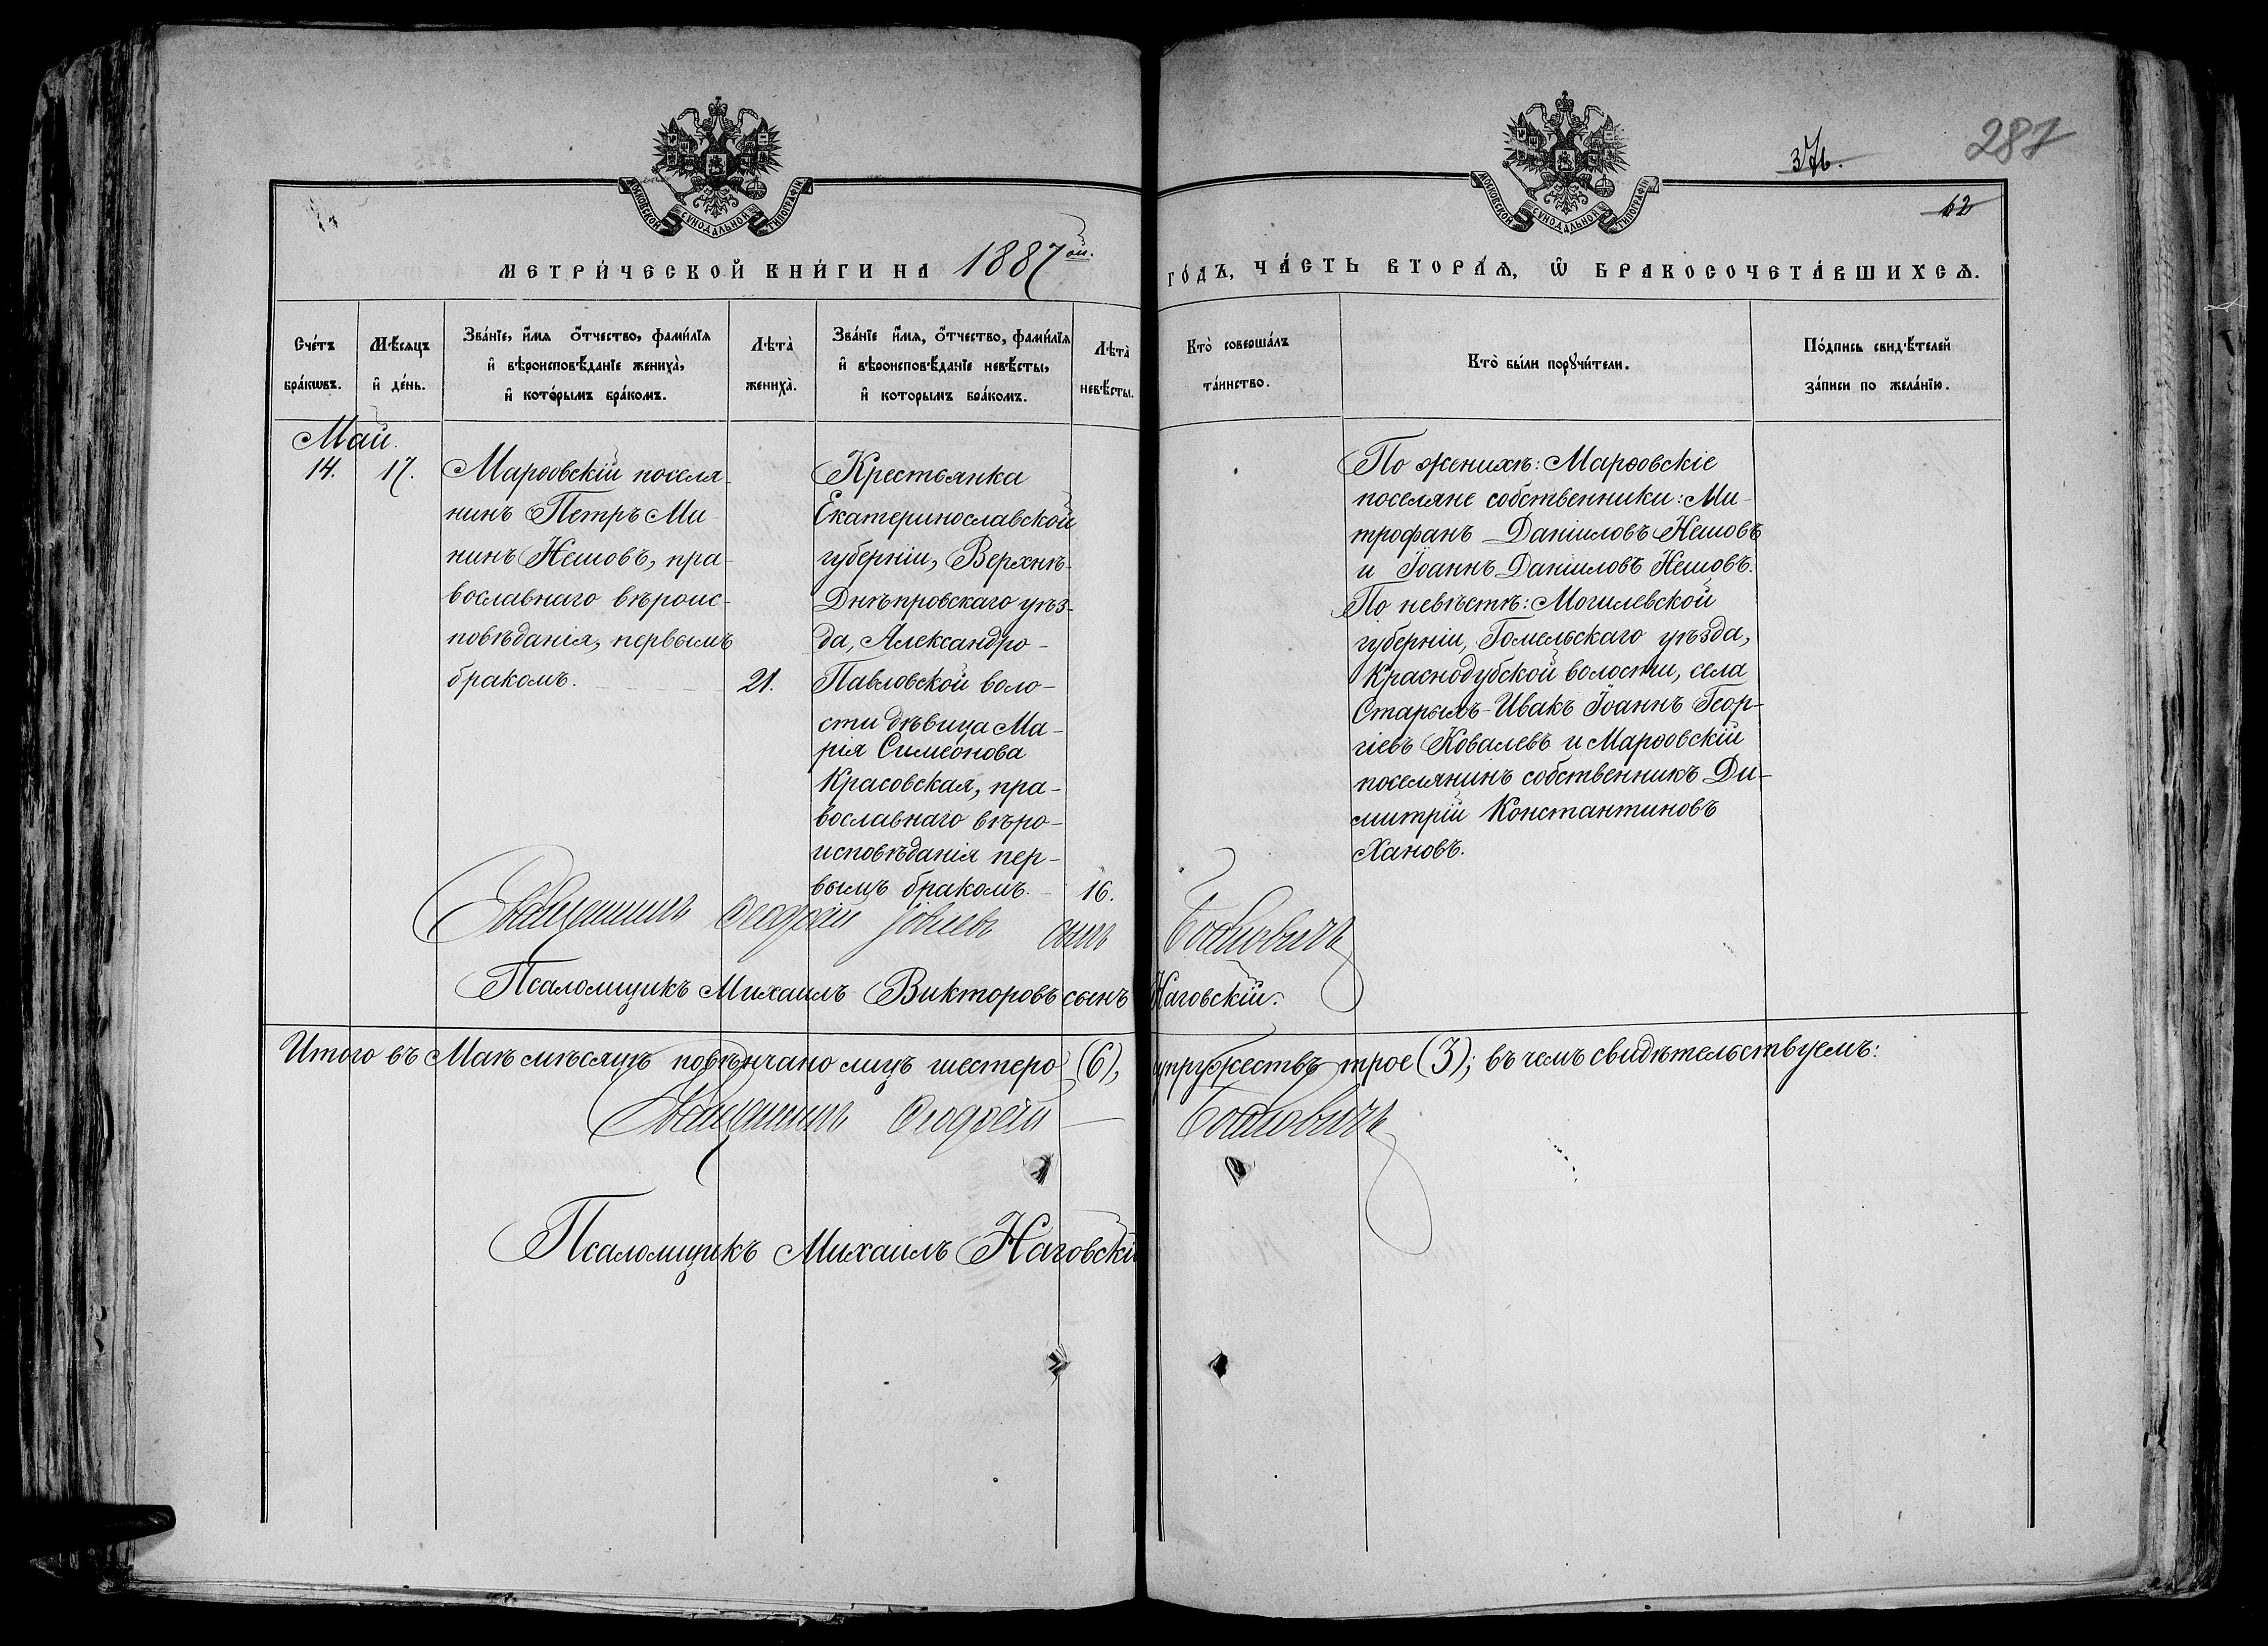 287
37б.
62
МОСКОВСКОЙ СУНОДАЛЬНОЙ ТИПОГРАФІИ
МОСКОВСКОЙ СУНОДАЛЬНОЙ ТИПОГРАФІИ
МЕТРИ́ЧЕСКОЙ КНИ́ГИ НА 1887ой. ГО́ДЪ, ЧА́СТЬ ВТОРА́Ѧ, Ѿ БРАКОСОЧЕТА́ВШИХСѦ.
Сче́тъ
бра́кѡвъ.
Мѣ́сяцъ
и҆ де́нь.
Зва́нїе, и҆́мя ѻ҆́тчество, фами́лїя
и҆ вѣроисповѣ́данїе жениха̀,
и҆ кото́рымъ бра́комъ.
Лѣта̀
жениха̀.
Зва́нїе и҆́мя, ѻ҆́тчество, фами́лїя
и҆ вѣроисповѣ́данїе невѣ́сты,
и҆ которымъ бра́комъ.
Лѣта̀
невѣ́сты.
Кто̀ соверша́лъ
та́инство.
Кто̀ бы́ли порꙋчи́тели.
По́дпись свидѣ́телей
за́писи по жела́нїю.
Май.
14.
17.
Марѳовскій поселя-
нинъ Петръ Ми-
нинъ Нешовъ, пра-
вославнаго вѣроис-
повѣданія, первымъ
бракомъ.
21.
Крестьянка
Екатеринославской
губерніи, Верхнѣ-
Днѣпровскаго уѣз-
да, Александро-
Павловской воло-
сти дѣвица Ма-
рія Симеонова
Красовская, пра-
вославнаго вѣро-
исповѣданія пер-
вымъ бракомъ.
16.
По женихѣ: Марѳовскіе
поселяне собственники: Ми-
трофанъ Даніиловъ Нешовъ
и Іоаннъ Даніиловъ Нешовъ.
По невѣстѣ: Могилевской
губерніи, Гомельскаго уѣзда,
Краснодубской волости, села
Старыхъ-Ивакъ Іоаннъ Геор-
гіевъ Ковалевъ и Марѳовскій
поселянинъ собственникъ Ди-
митрій Константиновъ
Хановъ.
Священникъ сынъ
Псаломщикъ Михаилъ Викторовъ сынъ Наговскій.
Итого въ Маѣ мѣсяцѣ повѣнчано лицъ шестеро (6), супружествъ трое (3); въ чемъ свидѣтельствуемъ:
Священникъ
Псаломщикъ Михаилъ Наговскій